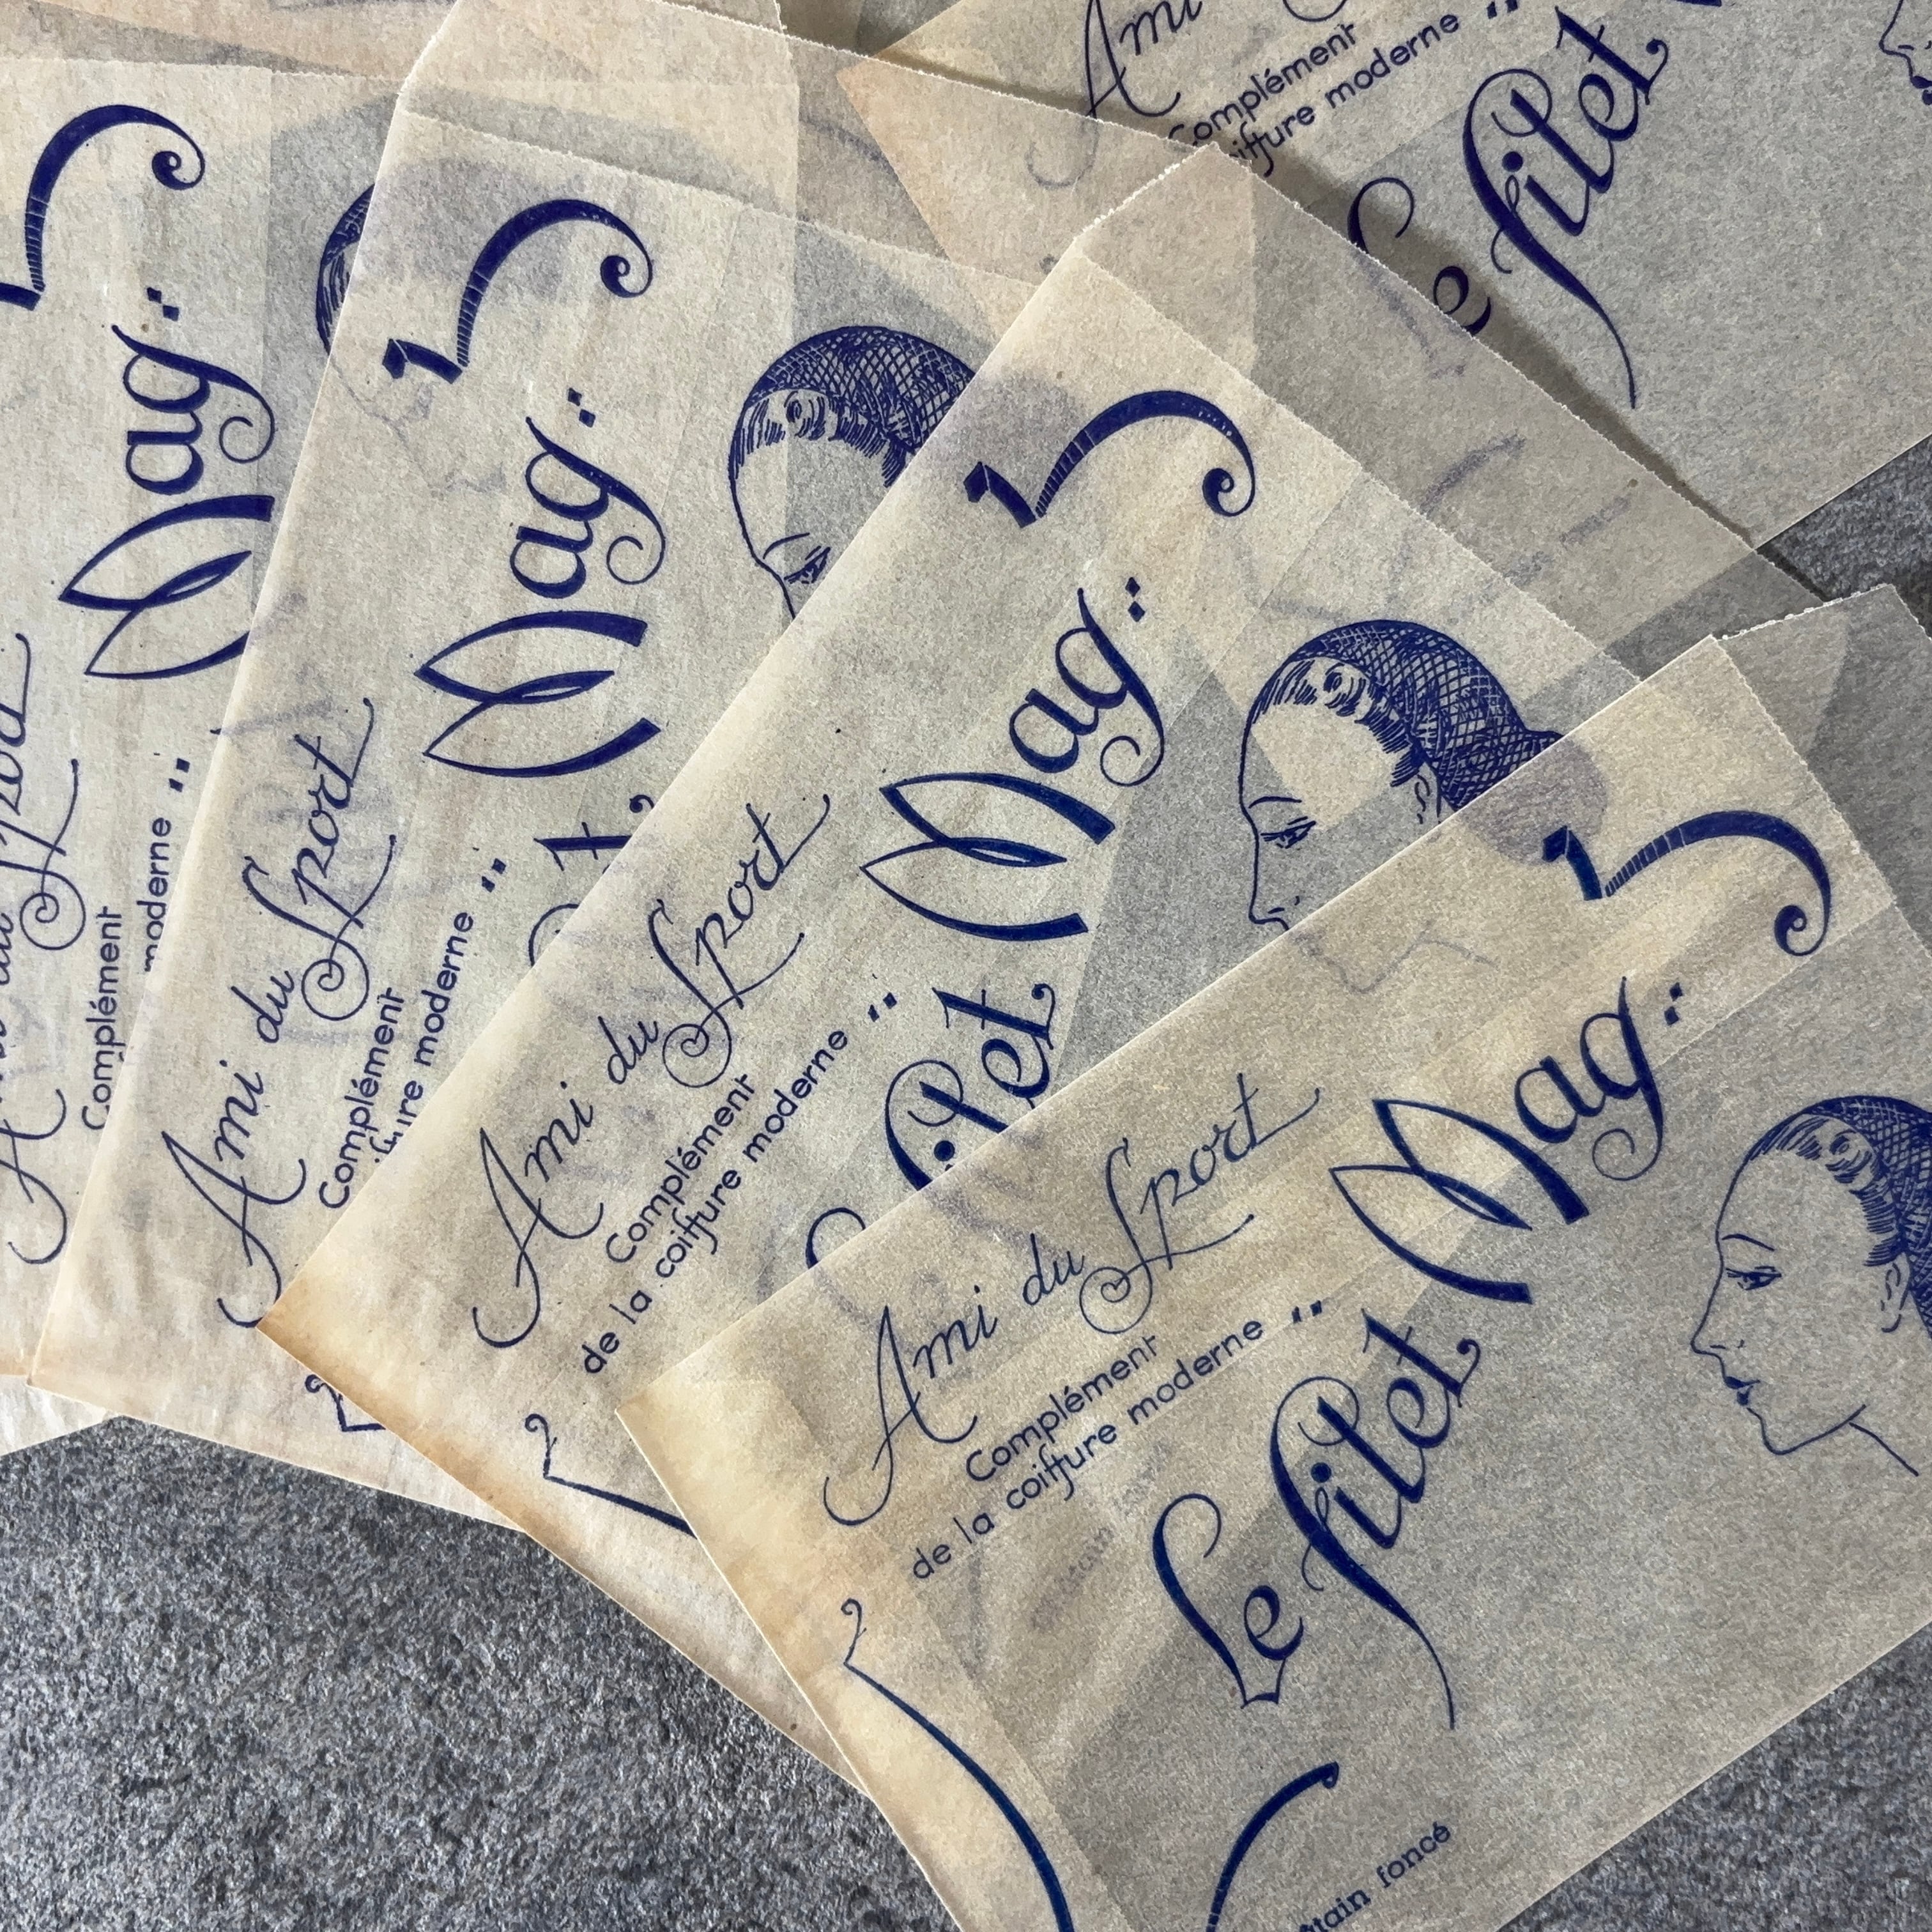 Ami
Complément
coiffure moderne ..
Le filet
Ami du Sport
Complément
moderne ..
Mag..
Ami du Sport
Complément
iffure moderne ..
et Mag..
Ami du Sport
Complément
de la coiffure moderne ..
Le filet Mag..
Ami du Sport
Complément
de la coiffure moderne ..
Le filet Mag..
tain foncé